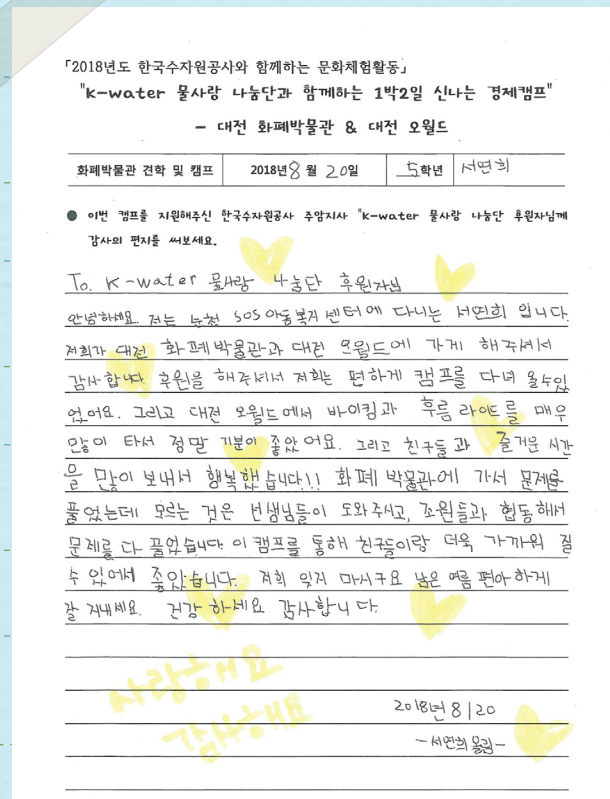 「2018년도 한국수자원공사와 함께하는 문화체험활동」
"K-water 물사랑 나눔단과 함께하는 1박2일 신나는 경제캠프"
- 대전 화폐박물관 & 대전 오월드
화폐박물관 견학 및 캠프 2018년 8 월 20일 5학년 서연희
● 이번 캠프를 지원해주신 한국수자원공사 주암지사 "K-water 물사랑 나눔단 후원자님께
감사의 편지를 써보세요.
To. K-water 물사랑 나눔단 후원자님
안녕하세요. 저는 순천 SOS아동복지센터에 다니는 서연희 입니다.
저희가 대전 화폐박물관과 대전 오월드에 가게 해주셔서
감사합니다. 후원을 해주셔서 저희는 편하게 캠프를 다녀 올수있
었어요. 그리고 대전 오월드에서 바이킹과 후름 라이드를 매우
많이 타서 정말 기분이 좋았어요. 그리고 친구들과 즐거운 시간
을 많이 보내서 행복했습니다!! 화폐 박물관에 가서 문제를
풀었는데 모르는 것은 선생님들이 도와주시고, 조원들과 협동해서
문제를 다 풀었습니다. 이 캠프를 통해 친구들이랑 더욱 가까워 질
수 있어서 좋았습니다. 저희 잊지 마시구요 남은 여름 편아하게
잘 지내세요. 건강 하세요 감사합니다.
사랑해요
감사해요
2018년 8/20
-서연희 올림-